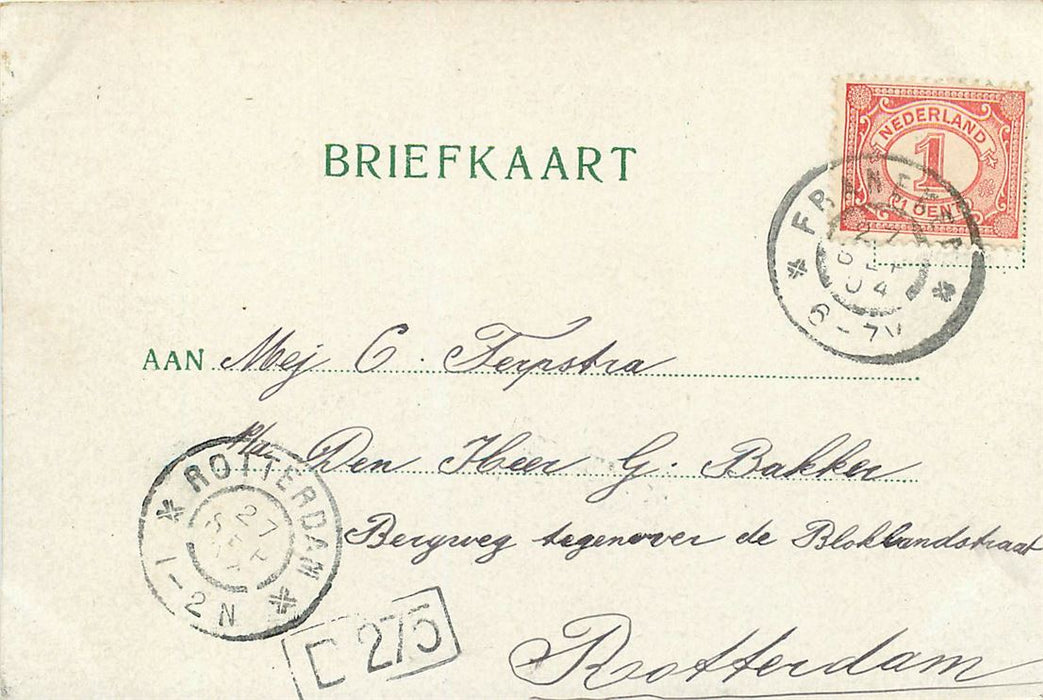 BRIEFKAART
NEDERLAND
1
CENT
FRANEKER
27
SEP
04
6-7V
AAN Mej C. Terpstra
p/a Den Heer G. Bakker
Bergweg tegenover de Bloklandstraat
Rotterdam
ROTTERDAM
27
SEP
1-2N
275